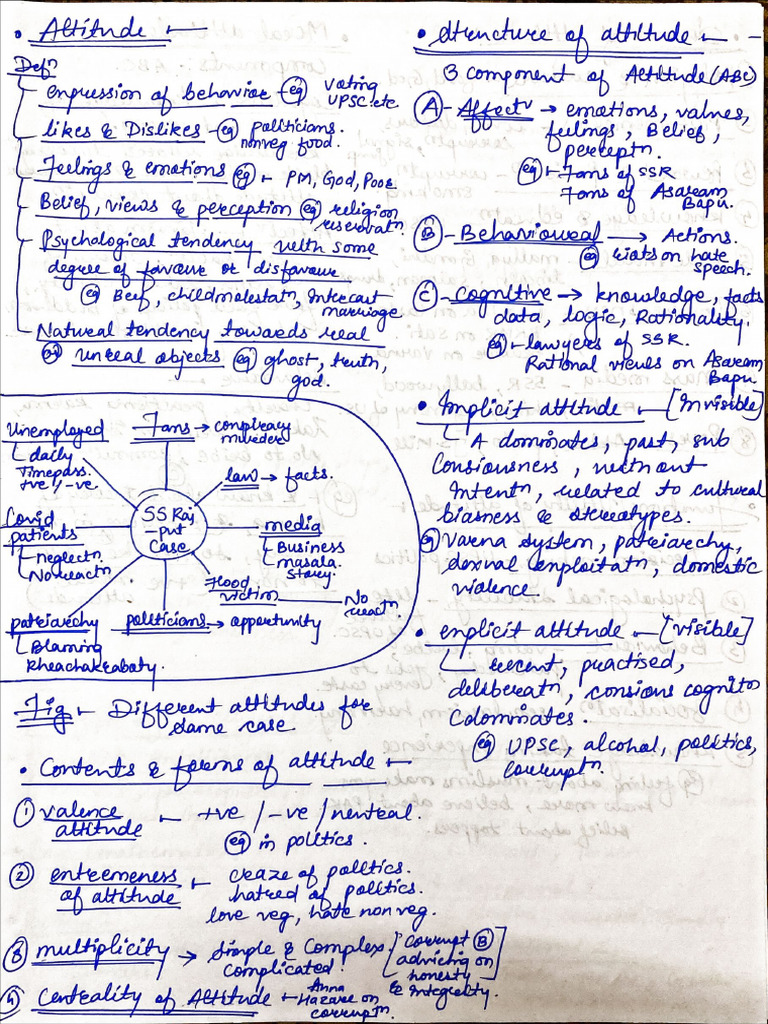 • Attitude ⟵
Defⁿ
expression of behaviour (eg) voting
UPSC etc
likes & Dislikes - (eg) politicians.
nonveg food.
Feelings & emotions (eg) PM, God, Poor
Belief, views & perception (eg) religion
reservatⁿ
Psychological tendency with some
degree of favour or disfavour
(eg) Beef, child molestatⁿ, Intercast
marriage
Natural tendency towards real
or unreal objects (eg) ghost, truth,
god.
SS Raj
-put
Case
Unemployed
daily
Timepass.
+ve / -ve.
Fans → conspiracy
murder
law → facts.
media
Business
masala.
story.
Flood
victim — No
reactⁿ
politicians → opportunity
patriarchy
Blaming
Rheachakrabaty.
Covid
patients
neglectⁿ
No reactⁿ
Fig Different attitudes for
same case.
• Contents & forms of attitude
① valence
attitude +ve / -ve / neutral.
(eg) in politics.
② extremeness
of attitude craze of politics.
hatred of politics.
love veg, hate non veg.
③ multiplicity → Simple & Complex
complicated. [corrupt (B)
advicing on
honesty
& Integrity.]
④ Centrality of Attitude Anna
Hazare on
corruptⁿ.
• Structure of attitude -
3 component of Attitude (ABC)
(A) - Affect → emotions, values,
feelings, Belief,
perceptⁿ.
(eg) Fans of SSR
Fans of Asaram
Bapu.
(B) - Behavioural → Actions.
(eg) riots on hate
speech.
(C) - cognitive → knowledge, facts
data, logic, Rationality.
(eg) lawyers of SSR.
Rational views on Asaram
Bapu.
• Implicit attitude [Invisible]
A dominates, past, sub
Consiousness, without
Intentⁿ, related to cultural
biasness & stereotypes.
(eg) Varna system, patriarchy,
sexual exploitatⁿ, domestic
violence.
• explicit attitude [visible]
recent, practised,
deliberatⁿ, consious cognitⁿ
C dominates.
(eg) UPSC, alcohol, politics,
corruptⁿ.